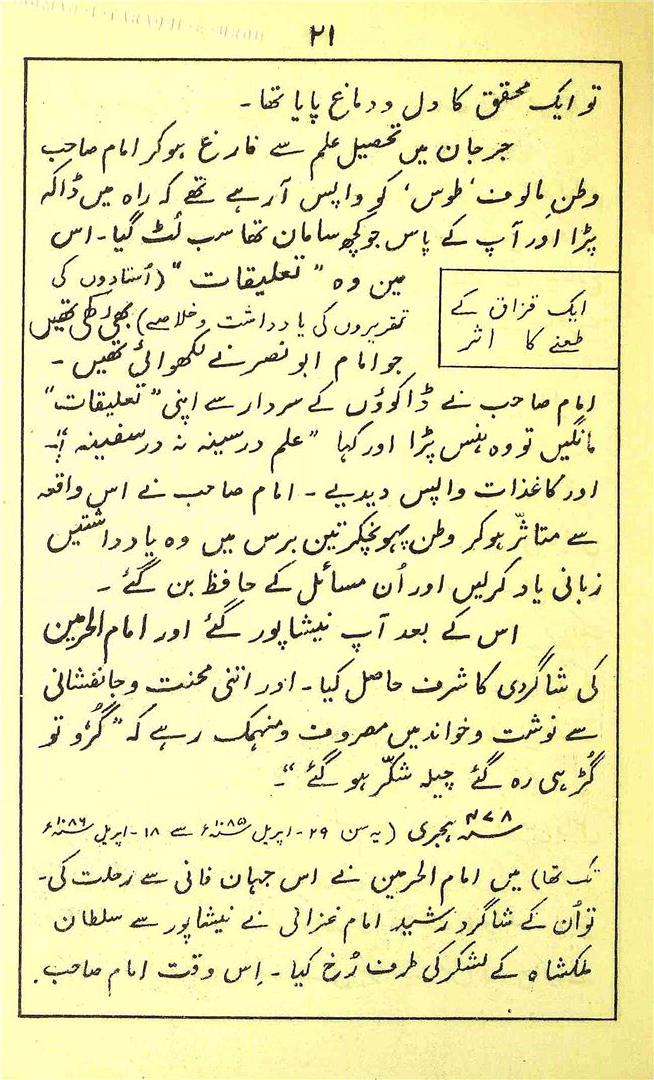 ۲۱
تو ایک محقق کا دل و دماغ پایا تھا۔
جرجان میں تحصیل علم سے فارغ ہوکر امام صاحب
وطنِ مالوف ‘طوس’ کو واپس آرہے تھے کہ راہ میں ڈاکہ
پڑا اور آپ کے پاس جوکچھ سامان تھا سب لُٹ گیا۔ اس
مین وہ “تعلیقات” (اُستادوں کی
ایک قزاق کے
تقریروں کی یادداشت وخلاصے) بھی رکھی تھیں
طعنے کا اثر
جو امام ابونصر نے لکھوائی تھیں۔
امام صاحب نے ڈاکوؤں کے سردار سے اپنی “تعلیقات”
مانگیں تو وہ ہنس پڑا اور کہا “علم در سینہ نہ در سفینہ”۔
اور کاغذات واپس دیدیے۔ امام صاحب نے اس واقعہ
سے متاثّر ہوکر وطن پہونچکر تین برس میں وہ یادداشتیں
زبانی یاد کرلیں اور اُن مسائل کے حافظ بن گئے۔
اس کے بعد آپ نیشاپور گئے اور امام الحرمین
کی شاگردی کا شرف حاصل کیا۔ اور اتنی محنت وجانفشانی
سے نوشت وخواند میں مصروف ومنہمک رہے کہ “گُرو تو
گُڑ ہی رہ گئے چیلہ شکّر ہوگئے”۔
۴۷۸ ہجری (یہ سن ۲۹۔ اپریل ۱۰۸۵ء سے ۱۸۔ اپریل ۱۰۸۶ء
تک تھا) میں امام الحرمین نے اس جہان فانی سے رحلت کی۔
تو اُن کے شاگرد رشید امام غزالی نے نیشاپور سے سلطان
ملکشاہ کے لشکر کی طرف رُخ کیا۔ اِس وقت امام صاحب